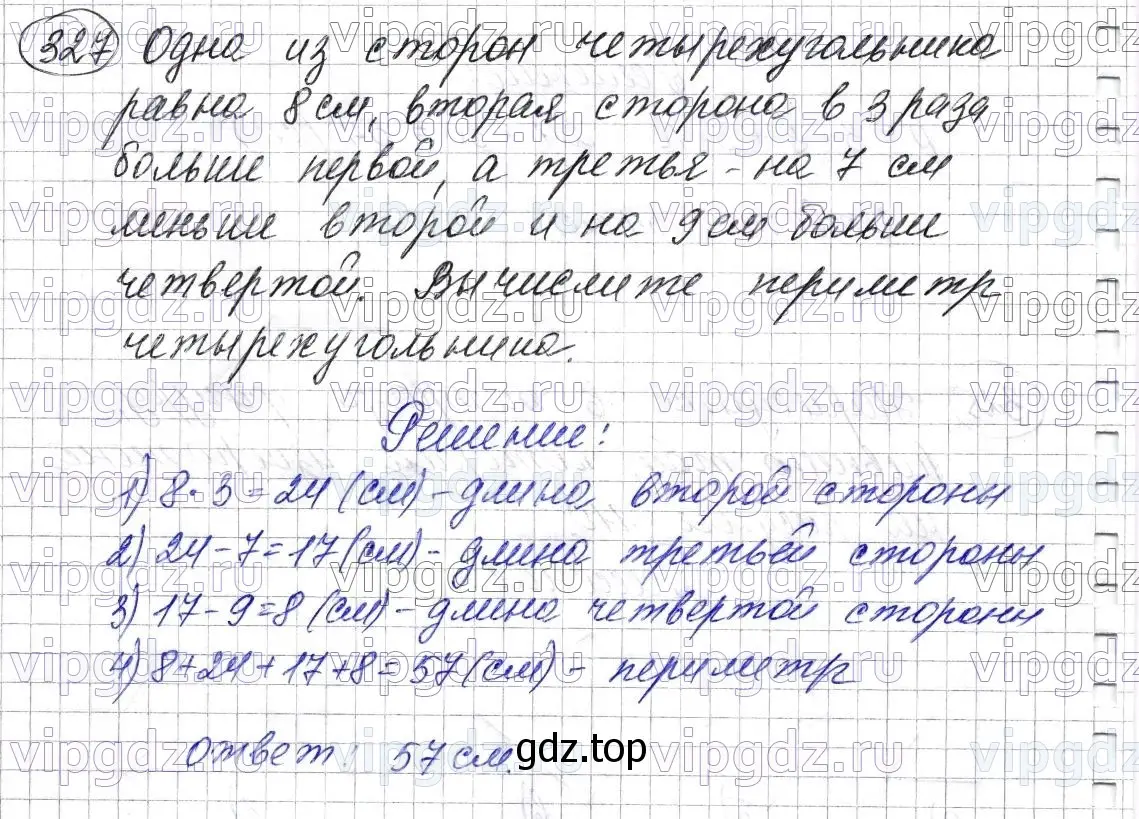 327 Одна из сторон четырехугольника
равна 8 см, вторая сторона в 3 раза
больше первой, а третья - на 7 см
меньше второй и на 9 см больше
четвертой. Вычислите периметр
четырехугольника.
Решение:
1) 8 · 3 = 24 (см) - длина второй стороны
2) 24 - 7 = 17 (см) - длина третьей стороны
3) 17 - 9 = 8 (см) - длина четвертой стороны
4) 8 + 24 + 17 + 8 = 57 (см) - периметр
Ответ: 57 см.
gdz.top
vipgdz.ru